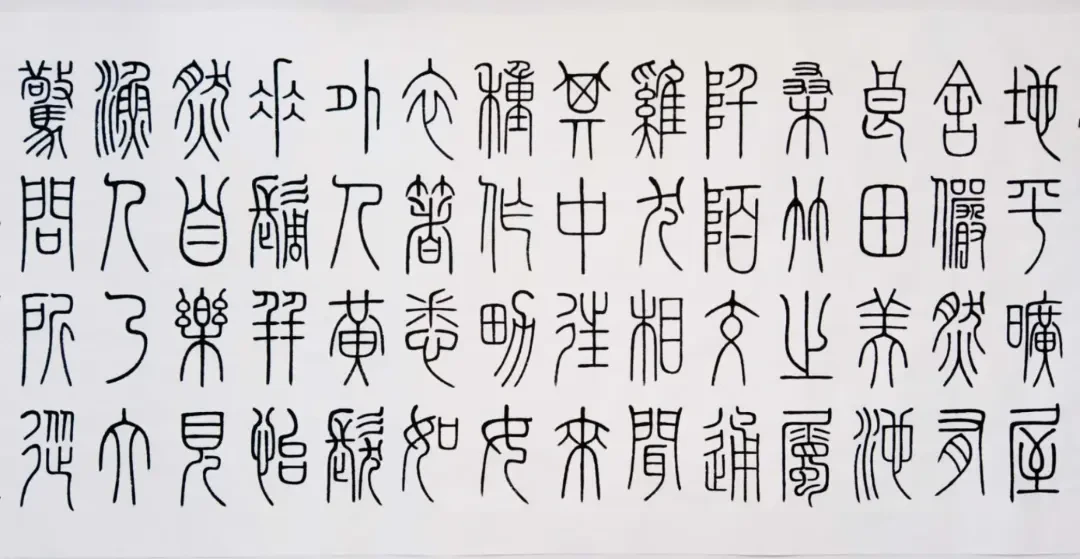 地平曠屋
舍儼然有
良田美池
桑竹之屬
阡陌交通
雞犬相聞
其中往來
種作男女
衣著悉如
外人黃髮
垂髫并怡
然自樂見
漁人乃大
驚問所從